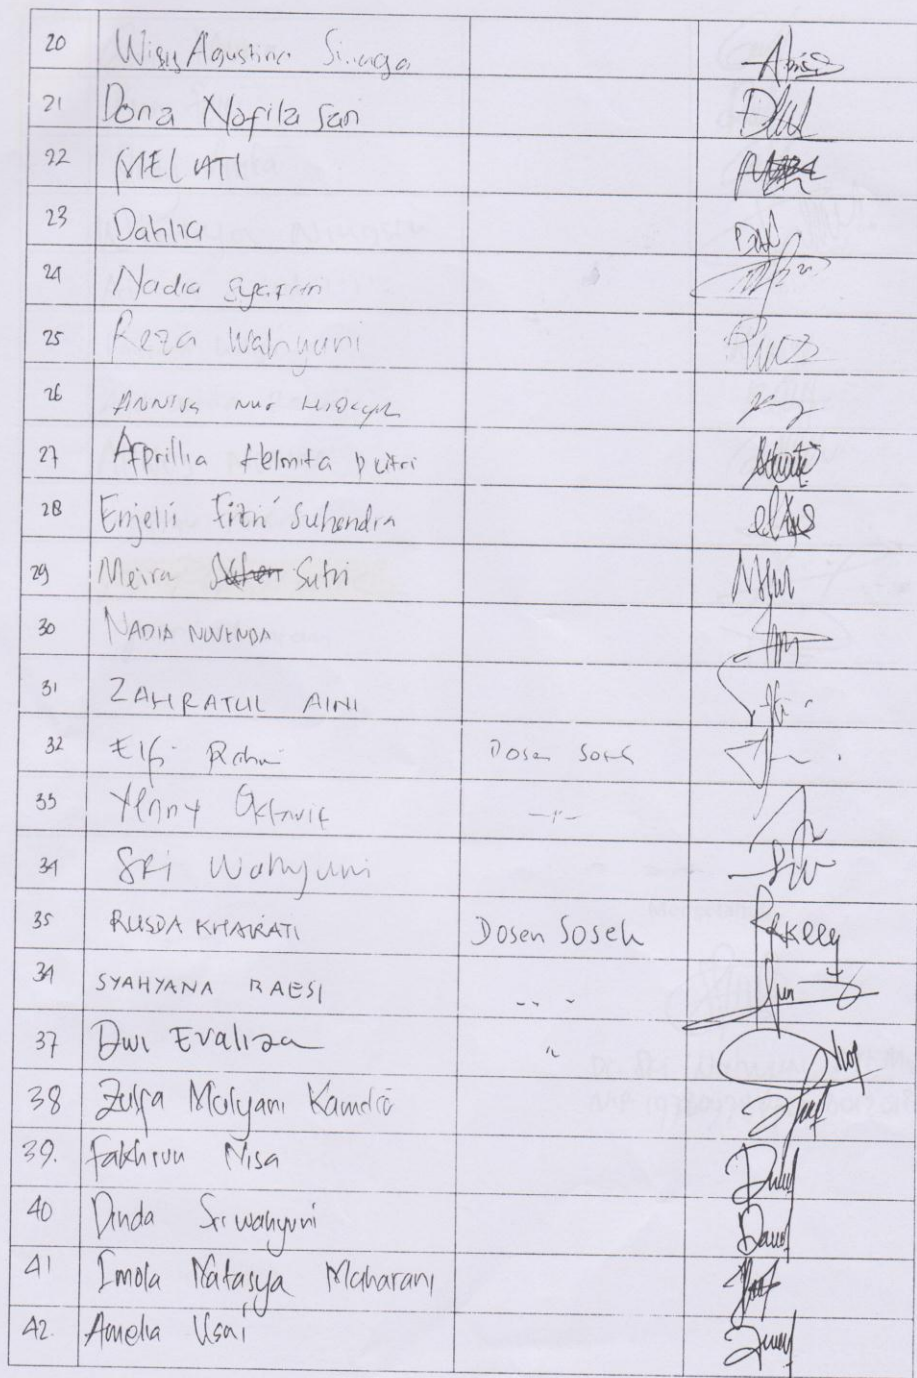 20 Wigy Agustina Sinaga
21 Dona Nofila Sari
22 MELVATI
23 Dahlia
24 Nadia Syafitri
25 Reza Wahyuni
26 ANNISA NUR HIDAYAH
27 Aprillia Helmita putri
28 Enjelli Fitri Suhendra
29 Meira Sutri
30 NADIA NOVENDA
31 ZAHRATUL AINI
32 Elfi Rahmi Dosen Sosek
33 Yenny Oktavia -"-
34 SRi Wahyuni
35 RUSDA KHAIRATI Dosen Sosek
34 SYAHYANA RAESI
37 Dwi Evaliza "
38 Zulfa Mulyani Kamdia
39. Fakhrun Nisa
40 Dinda Sri wahyuni
41 Imola Natasya Maharani
42. Amelia